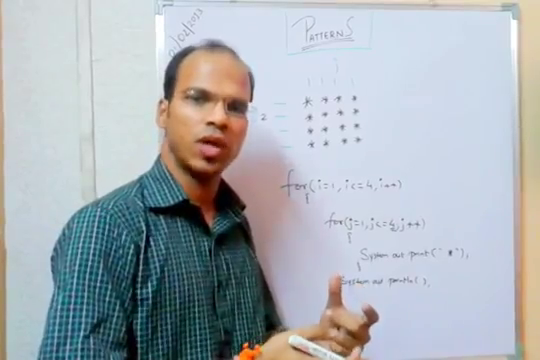 PATTERNS
* * * *
* * * *
2
* * * *
* * * *
for(i=1, i<=4, i++)
{
for(j=1, j<=4, j++)
{
System out print(" *");
}
System out println( );